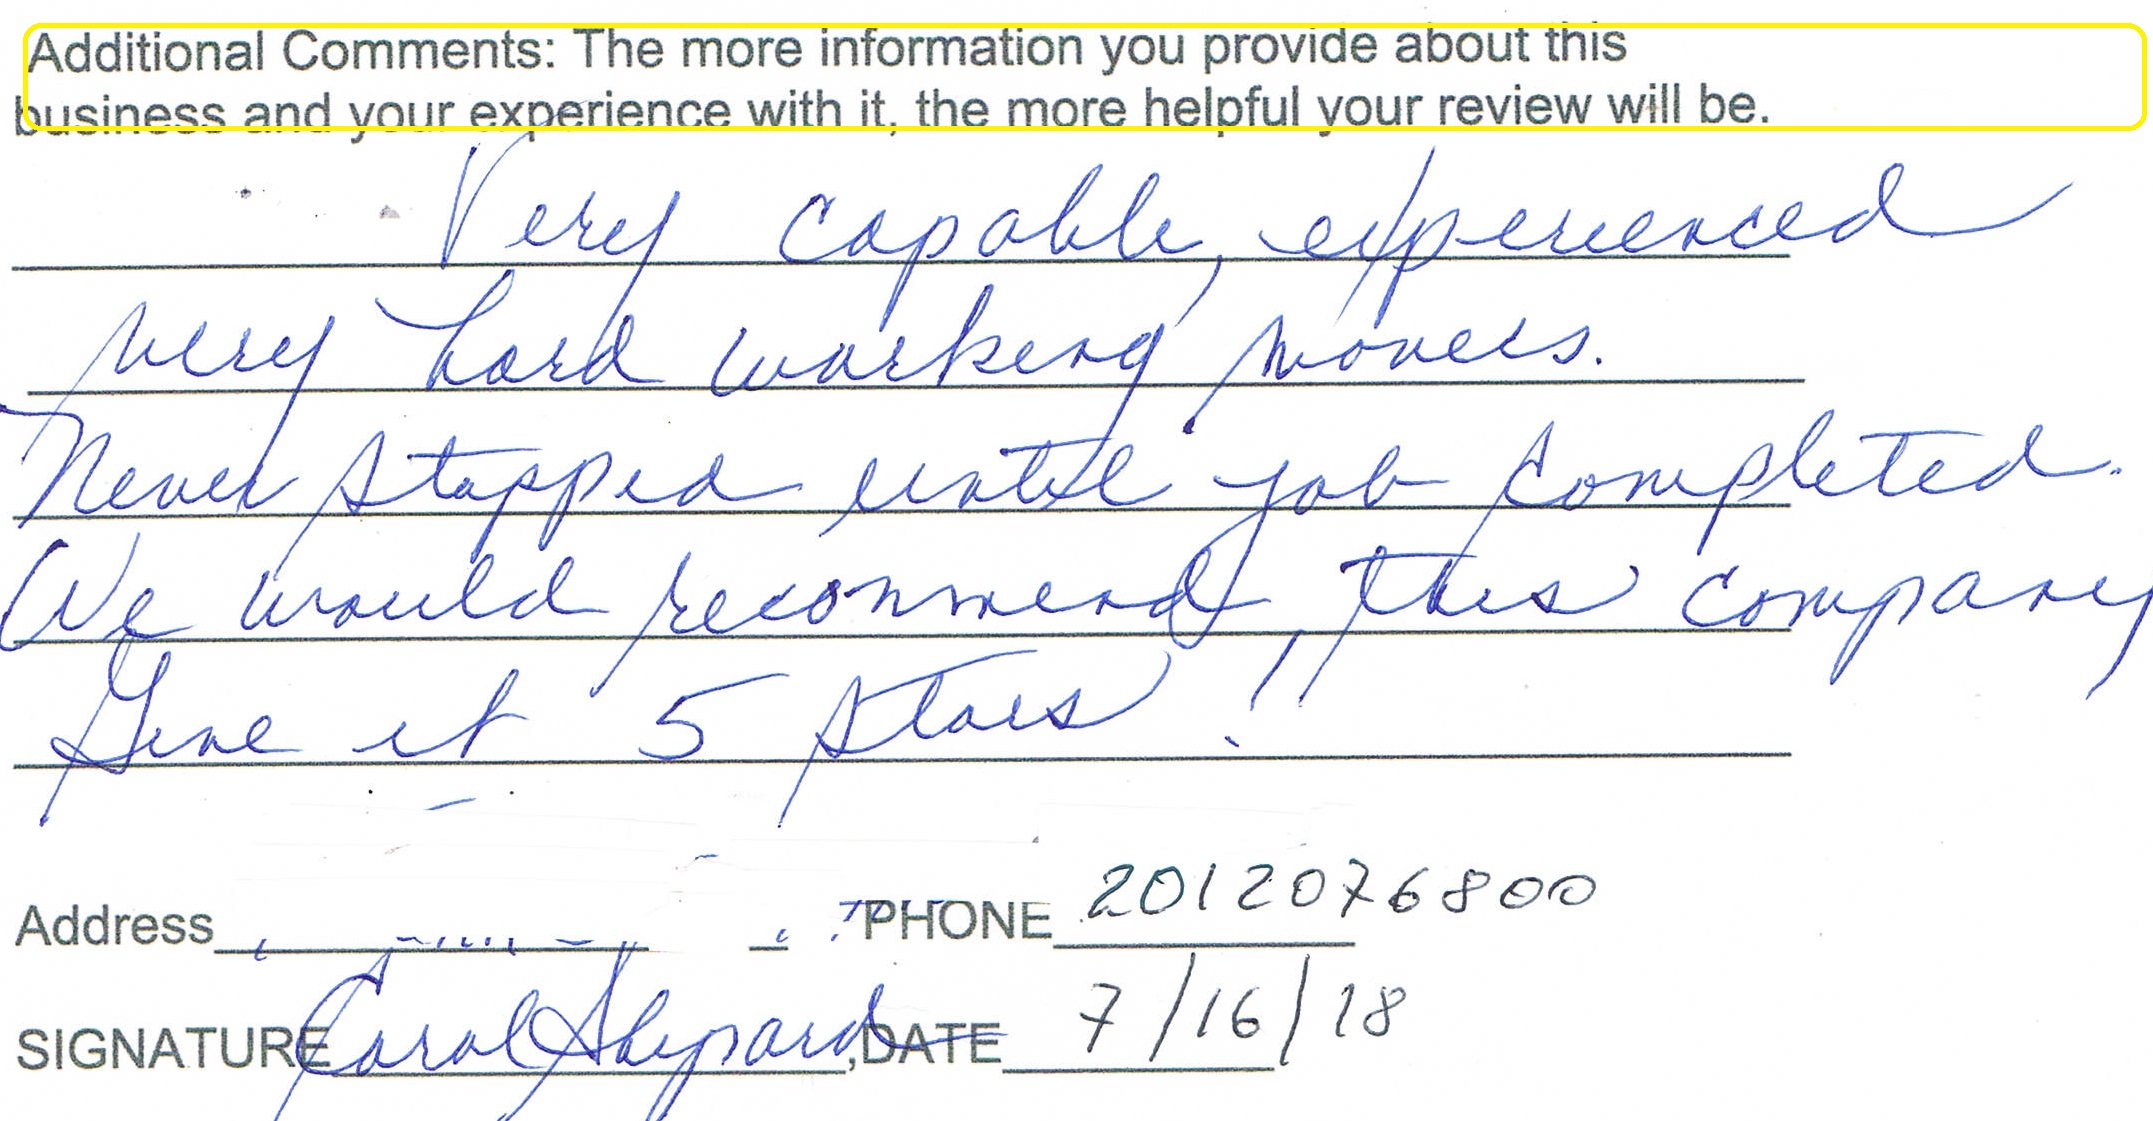 Additional Comments: The more information you provide about this
business and your experience with it, the more helpful your review will be.
Very capable, experienced
very hard working movers.
Never stopped until job completed.
We would recommend this company
Give it 5 stars!!
Address PHONE 2012076800
SIGNATURE Carol Shepard, DATE 7/16/18